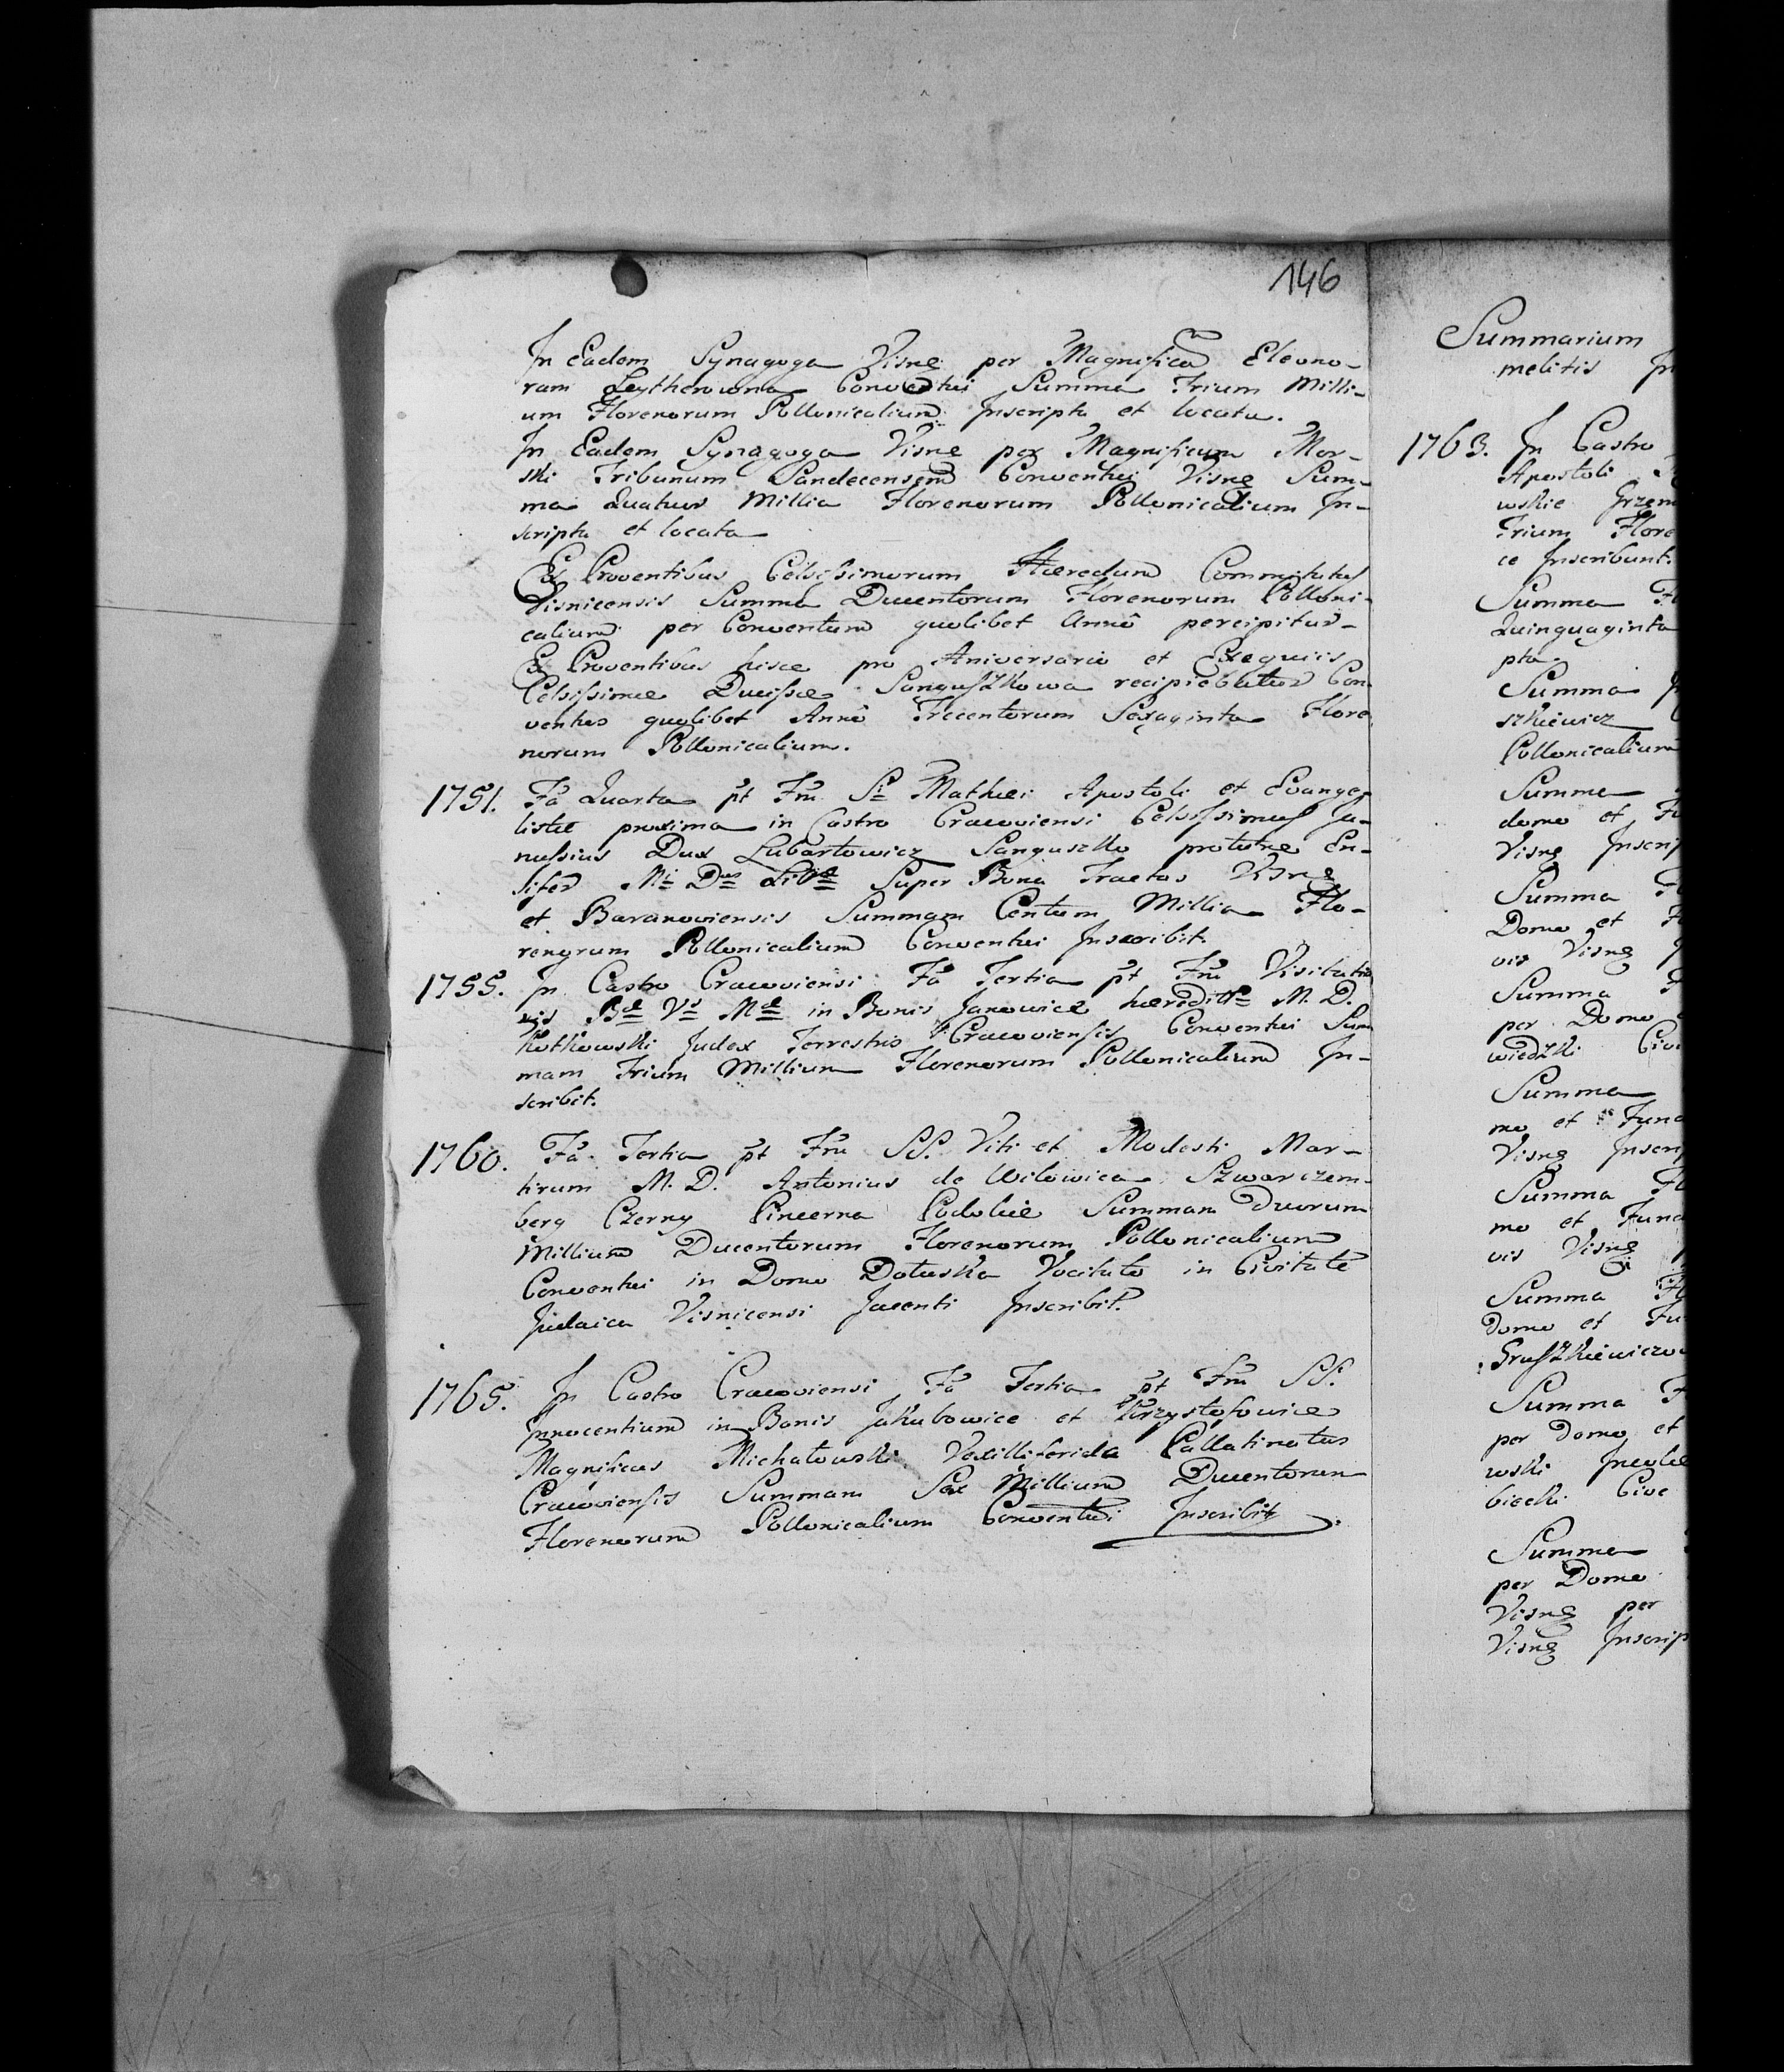 146
In Eadem Synagoga Visne per Magnificā Eleono-
ram Leytherowna Conventui Summa Trium Milli-
um Florenorum Pollonicalium Inscripta et locata.
In Eadem Synagoga Visne per Magnificum Mor-
ski Tribunum Sandecensem Conventui Visne Sum-
ma Quatuor Millia Florenorum Pollonicalium In-
scripta et locata
Ex Proventibus Celsissimorum Hæredum Commitatus
Visnicensis Summa Ducentorum Florenorum Polloni-
calium per Conventum quolibet Annô percipitur-
Ex Proventibus hisce pro Aniversario et Exequiis
Celsissimæ Ducissæ Sanguszkowa recipiebatur Con
ventus quolibet Annô Trecentorum Sexaginta Flore
norum Pollonicalium.
1751. Fâ Quarta pt Fm Sti Mathæi Apostoli et Evange-
listæ proxima in Castro Cracoviensi Celsissimus Ja-
nussius Dux Lubartowicz Sanguszko En-
sifer Mi Dus Super Bona Tractus Visne
et Baranoviensis Summam Centum Millia Flo-
renorum Pollonicalium Conventui Inscribit.
1755. In Castro Cracoviensi Fâ Tertia pt Fm Visitatio
nis Bæ Vs Mæ in Bonis Janowice M. D.
Kotkowski Judex Terrestris Cracoviensis Conventui Sum
mam Trium Millium Florenorum Pollonicalium In-
scribit.
1760. Fâ Tertia pt Fm SS. Viti et Modesti Mar-
tirum M. D. Antonius de Witowica Szwarczem-
berg Czerny Pincerna Podoliæ Summam Duorum
Millium Ducentorum Florenorum Pollonicalium
Conventui in Domo Datuska Vocitato in Civitate
Judaica Visnicensi Jacenti Inscribit.
1765. In Castro Cracoviensi Fâ Tertia pt Fm SS.
Innocentium in Bonis Jakubowice et Krzystoforice
Magnificus Michalowski Vexilliferida Pallatinatus
Cracoviensis Summam Sex Millium Ducentorum
Florenorum Pollonicalium Conventui Inscribit.
Summarium
melitis In
1763. In Castro
Apostoli
wskie Grzem
Trium Flore
ce Inscribunt.
Summa Fl
Quinquaginta
pta
Summa
szkiewicz
Pollonicalium
Summa
domo et Fu
Visnę Inscrip
Summa Fl
Domo et F
vis Visnę
Summa F
per Domo
wiedzki Civi
Summa
mo et Fund
Visnę Inscrip
Summa Fl
mo et Fund
vis Visnę
Summa Fl
Domo et Fu
Gruszkiewiczow
Summa F
per Domo et
wski Incolæ
biecki Cive
Summa
per Domo
Visnę per
Visnę Inscrip